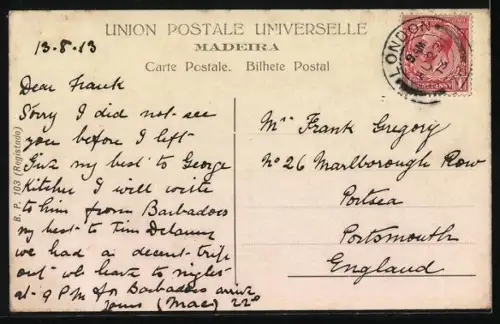 UNION POSTALE UNIVERSELLE
MADEIRA
Carte Postale. Bilhete Postal
13-8-13
LONDON
Dear Frank
Sorry I did not see
you before I left
Give my best to George
Kitcher I will write
to him from Barbadoes
my best to Tim Delaney
we had a decent trip
out we leave to night
at 9 PM for Barbadoes arrive
yours (Mac) 22nd
Mr Frank Gregory
No 26 Marlborough Row
Portsea
Portsmouth
England
B. P. 103 (Registado)